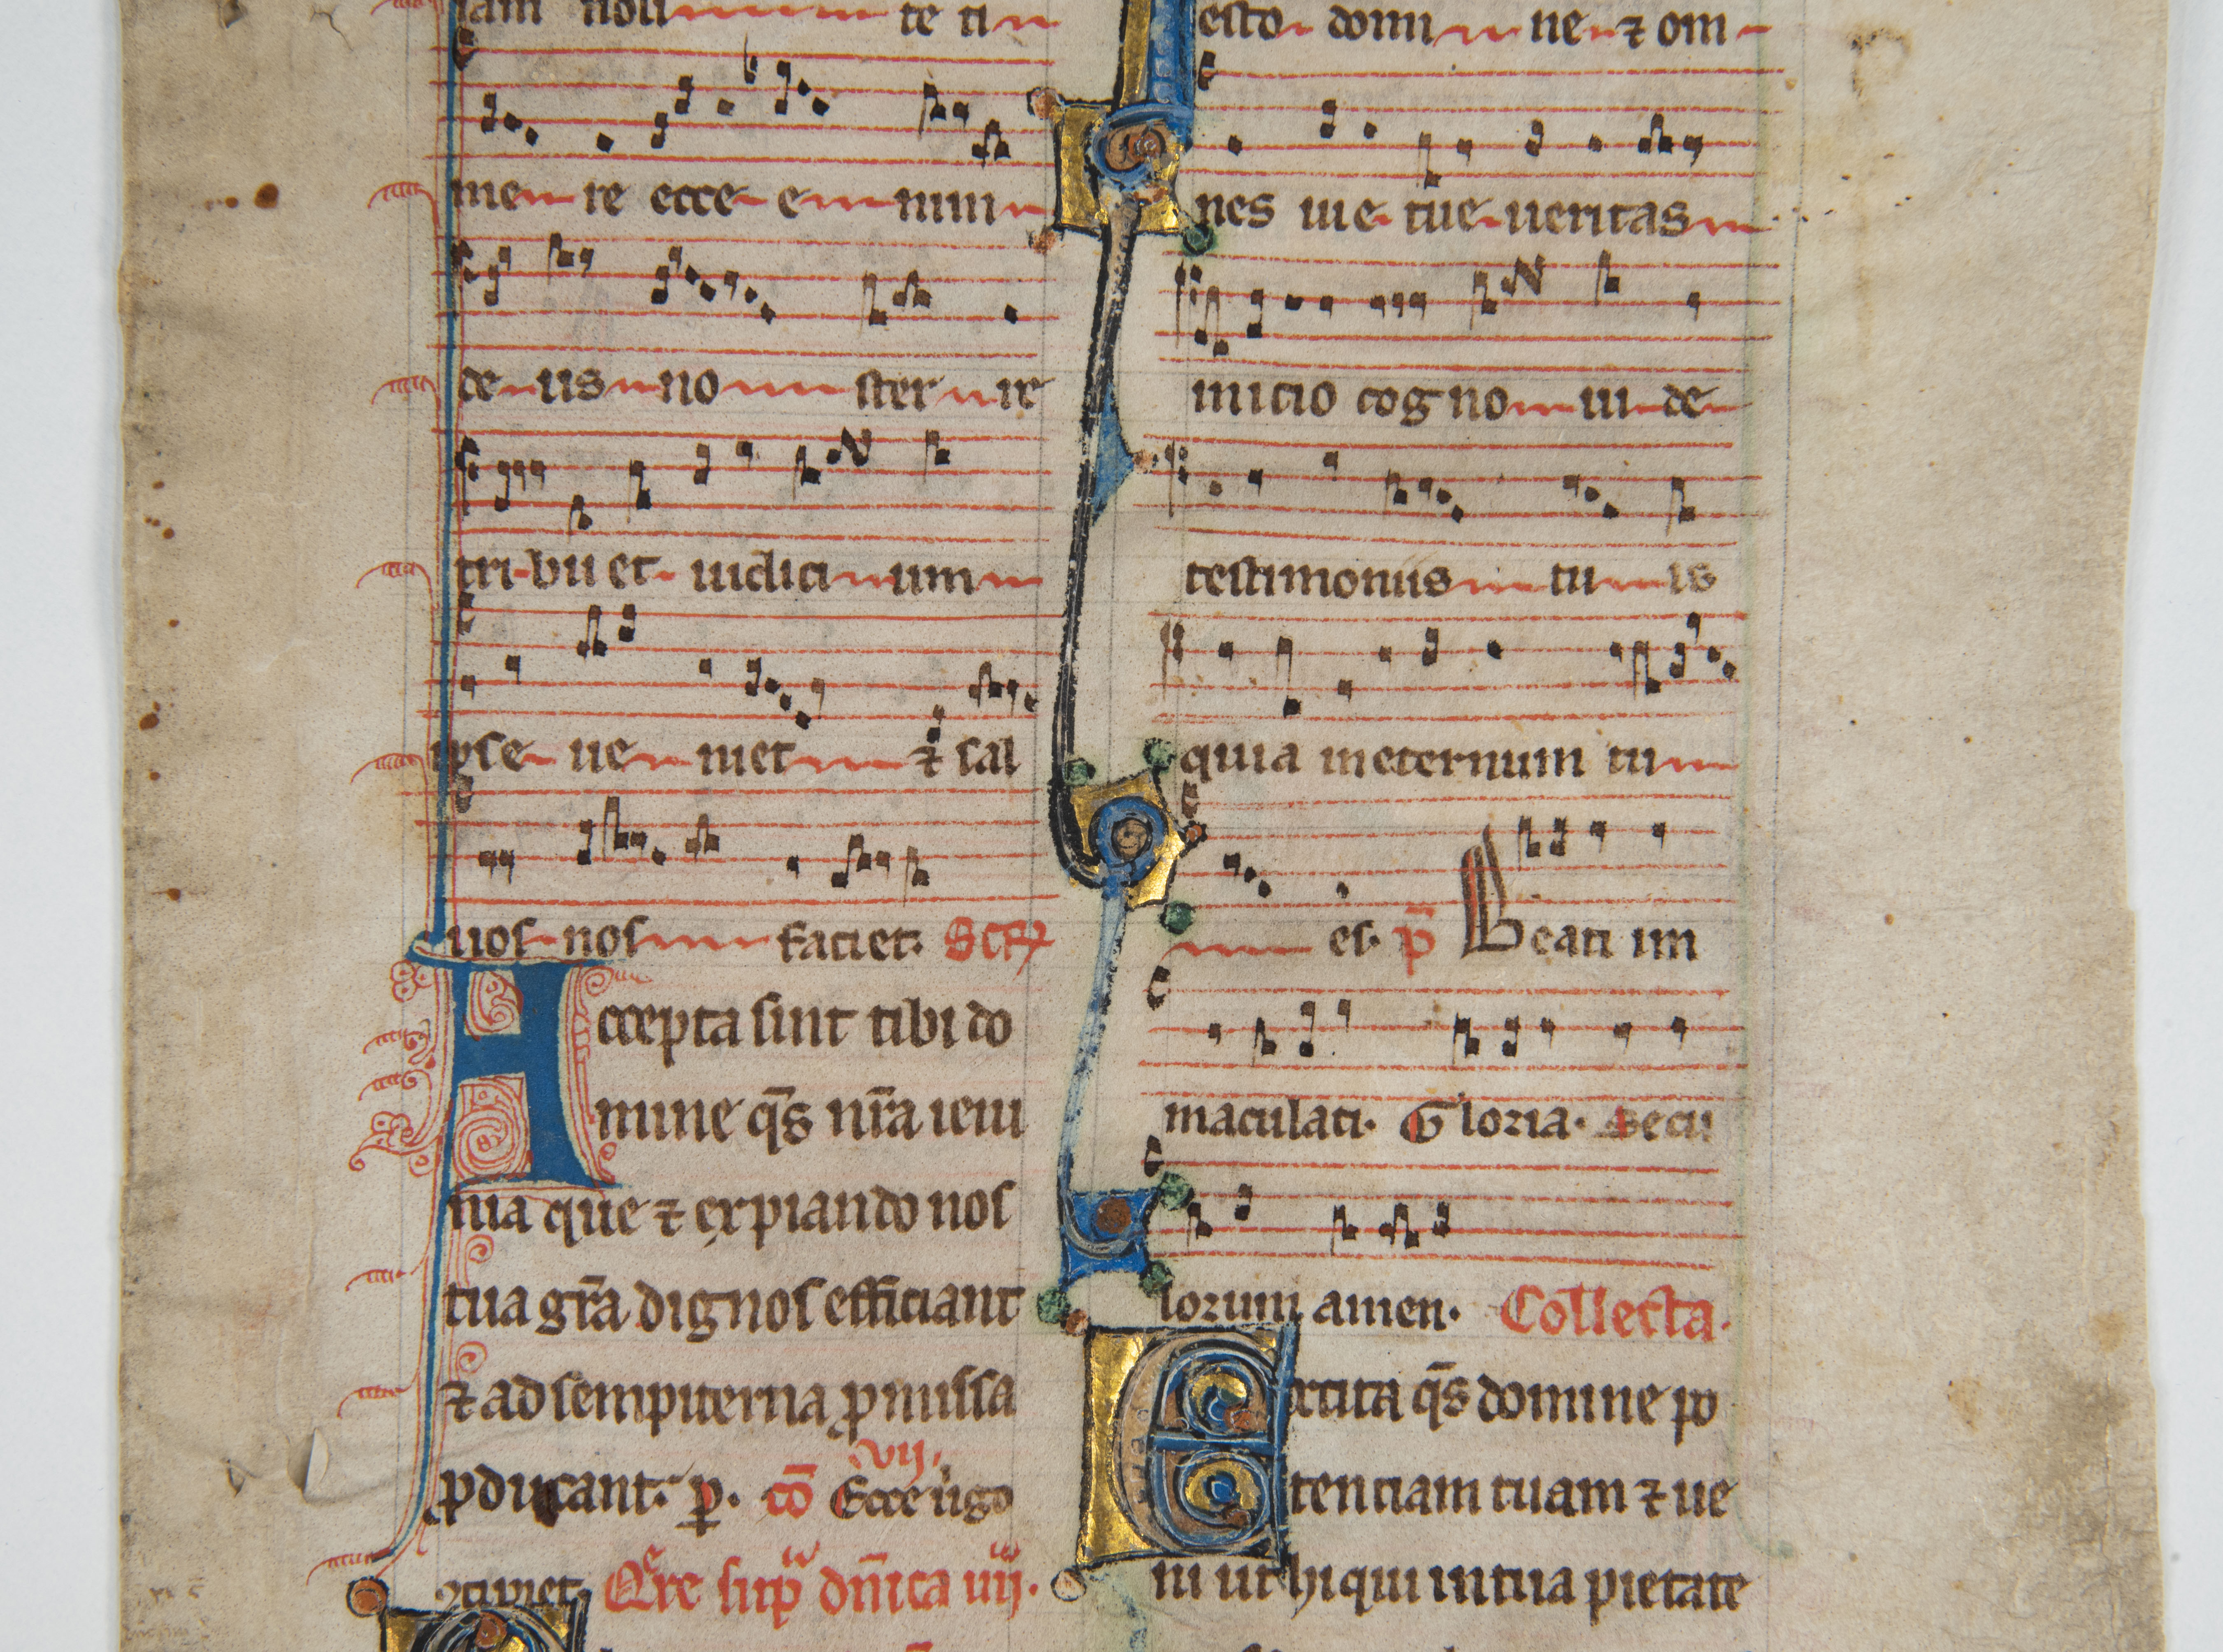 iam noli te ti
me re ecce e nim
de us no ster re
tri bu et iudici um
ipse ue niet ⁊ sal
uos nos faciet. Scr̄
Accepta sint tibi do
mine q̄s nr̄a ieiu
nia que ⁊ expiando nos
tua gr̄a dignos efficiant
⁊ ad sempiterna ꝓmissa
ꝑducant. ꝑ. co̅ Ecce uͥgo
vij.
ꝯcipiet. Qͤre suꝑ dn̄ica iiij.
esto domi ne ⁊ om
nes uie tue ueritas
inicio cogno ui de
testimoniis tu is
quia in eternum tu
es. p̄ Beati im
maculati. Gloria. Secu
lorum amen. Collecta.
Excita q̄s domine po
tenciam tuam ⁊ ue
ni ut hi qui in tua pietate